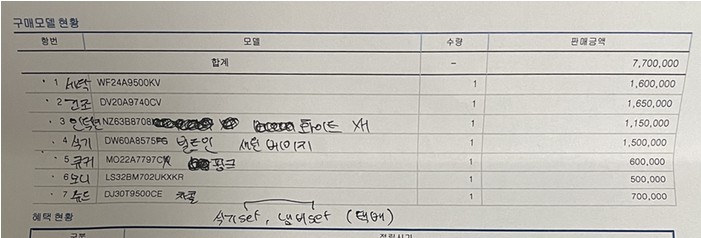 구매모델 현황
항번 모델 수량 판매금액
합계 - 7,700,000
1 세탁 WF24A9500KV 1 1,600,000
2 건조 DV20A9740CV 1 1,650,000
3 인덕션 NZ63B8708 화이트 1 1,150,000
4 식기 DW60A8575FG 빌트인 새틴 베이지 1 1,500,000
5 큐커 MO22A7797 핑크 1 600,000
6 모니 LS32BM702UKXKR 1 500,000
7 슈드 DJ30T9500CE 차콜 1 700,000
식기set, 냄비set (택배)
혜택 현황
구분